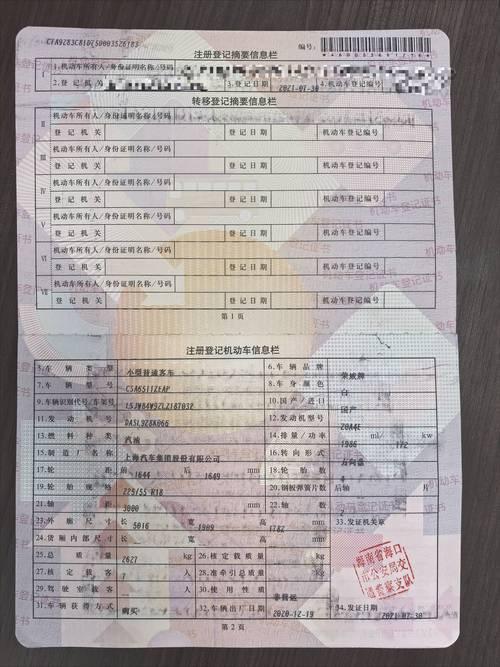 CFA9283C8107500035Z6183
编号:
注册登记摘要信息栏
I 1.机动车所有人/身份证明名称/号码
2.登记机关 3.登记日期 2021-07-30 4.机动车登记编号
转移登记摘要信息栏
II 机动车所有人/身份证明名称/号码
登记机关 登记日期 机动车登记编号
III 机动车所有人/身份证明名称/号码
登记机关 登记日期 机动车登记编号
IV 机动车所有人/身份证明名称/号码
登记机关 登记日期 机动车登记编号
V 机动车所有人/身份证明名称/号码
登记机关 登记日期 机动车登记编号
VI 机动车所有人/身份证明名称/号码
登记机关 登记日期 机动车登记编号
VII 机动车所有人/身份证明名称/号码
登记机关 登记日期 机动车登记编号
第1页
注册登记机动车信息栏
5.车辆类型 小型普通客车 6.车辆品牌 荣威牌
7.车辆型号 CSA6511ZEAP 8.车身颜色 白
9.车辆识别代号/车架号 10.国产/进口 国产
11.发动机号 12.发动机型号 20A4E
13.燃料种类 汽油 14.排量/功率 1986 ml 172 kw
15.制造厂名称 上海汽车集团股份有限公司 16.转向形式 方向盘
17.轮距 前 1644 后 1649 mm 18.轮胎数 4
19.轮胎规格 225/55 R18 20.钢板弹簧片数 后轴 片
21.轴距 3000 mm 22.轴数 2
23.外廓尺寸 长 5016 宽 1909 高 1782 mm 33.发证机关章
24.货厢内部尺寸 长 宽 高 mm
25.总质量 2627 kg 26.核定载质量 kg
27.核定载客 7 人 28.准牵引总质量 kg
29.驾驶室载客 人 30.使用性质 非营运
31.车辆获得方式 购买 32.车辆出厂日期 2020-12-19 34.发证日期 2021-07-30
海南省海口
市公安局交
通警察支队
第2页